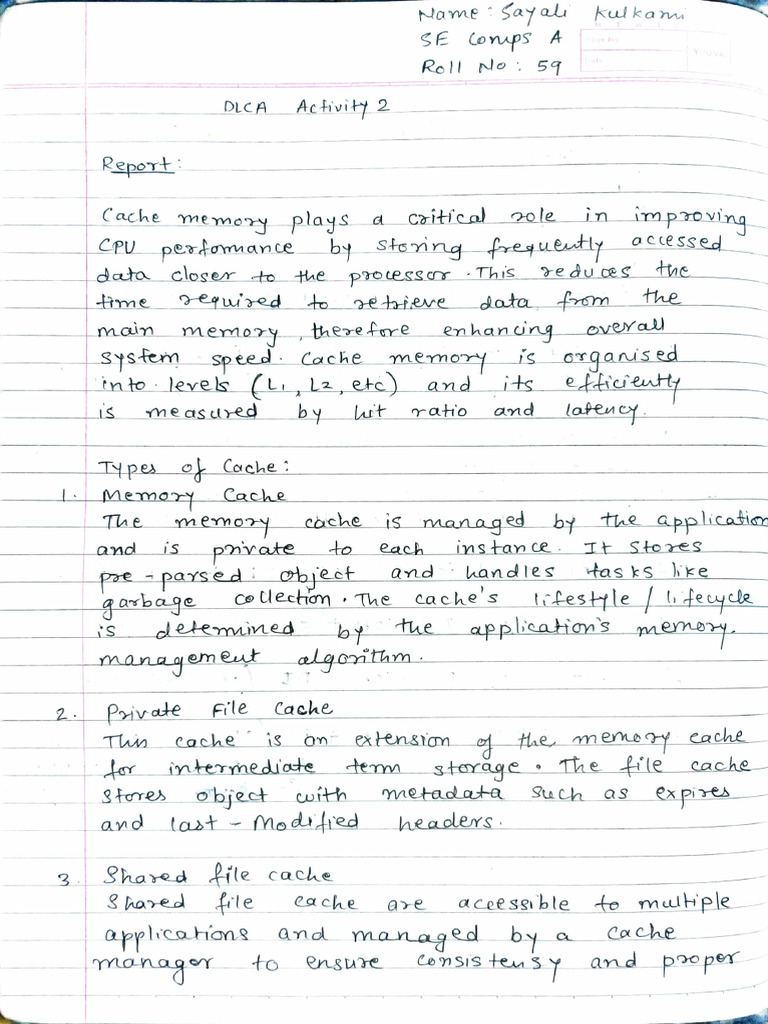 Name: Sayali Kulkarni
SE Comps A
Roll No: 59
DLCA Activity 2
Report:
Cache memory plays a critical role in improving
CPU performance by storing frequently accessed
data closer to the processor. This reduces the
time required to retrieve data from the
main memory, therefore enhancing overall
system speed. Cache memory is organised
into levels (L1, L2, etc) and its efficiently
is measured by hit ratio and latency.
Types of Cache:
1. Memory Cache
The memory cache is managed by the application
and is private to each instance. It stores
pre-parsed object and handles tasks like
garbage collection. The cache's lifestyle / lifecycle
is determined by the application's memory.
management algorithm.
2. Private File Cache
This cache is an extension of the memory cache
for intermediate term storage. The file cache
stores object with metadata such as expires
and last-Modified headers.
3. Shared file cache
Shared file cache are accessible to multiple
applications and managed by a cache
manager to ensure consistensy and proper